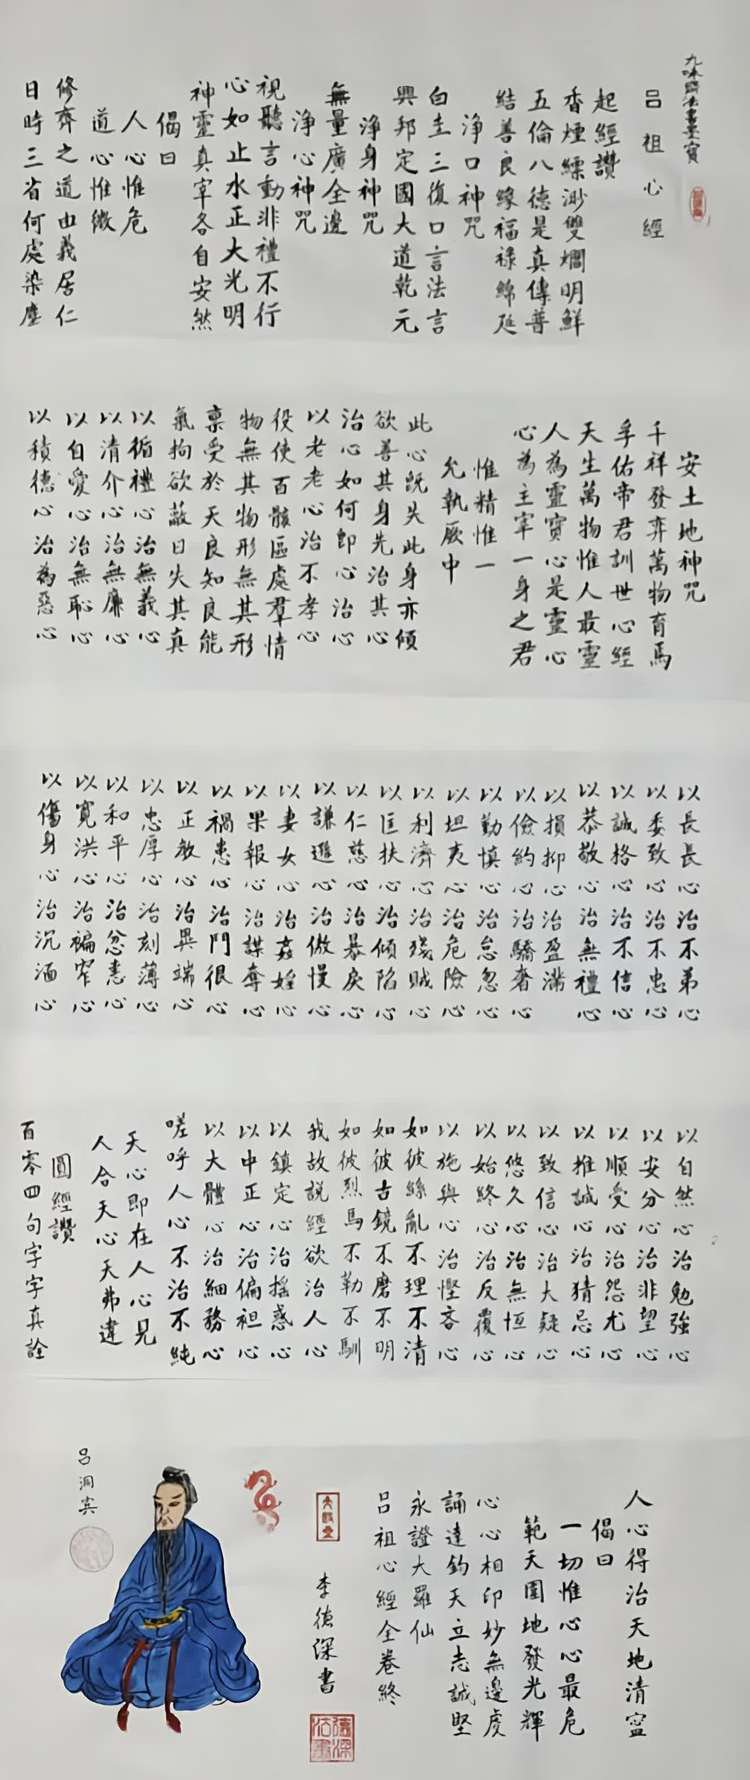 呂祖心經
起經讚
香煙縹渺雙爛明鮮
五倫八德是真傳普
結善良緣福祿綿延
淨口神咒
白圭三復口言法言
興邦定國大道乾元
淨身神咒
無量廣全邊
淨心神咒
視聽言動非禮不行
心如止水正大光明
神靈真宰各自安然
偈曰
人心惟危
道心惟微
修齊之道由義居仁
日時三省何處染塵
安土地神咒
千祥發弃萬物育焉
孚佑帝君訓世心經
天生萬物惟人最靈
人為靈寶心是靈心
心為主宰一身之君
惟精惟一
允執厥中
此心既失此身亦傾
欲善其身先治其心
治心如何即心治心
以老老心治不孝心
役使百骸區處羣情
物無其物形無其形
稟受於天良知良能
氣拘欲蔽日失其真
以循禮心治無義心
以清介心治無廉心
以自愛心治無恥心
以積德心治為惡心
以長長心治不弟心
以委致心治不忠心
以誠格心治不信心
以恭敬心治無禮心
以損抑心治盈滿
以儉約心治驕奢心
以勤慎心治怠忽心
以坦夷心治危險心
以利濟心治殘賊心
以匡扶心治傾陷心
以仁慈心治暴戾心
以謙遜心治傲慢心
以妻女心治姦婬心
以果報心治謀奪心
以禍患心治鬥很心
以正教心治異端心
以忠厚心治刻薄心
以和平心治忿恚心
以寬洪心治褊窄心
以傷身心治沉湎心
以自然心治勉強心
以安分心治非望心
以順受心治怨尤心
以推誠心治猜忌心
以致信心治大疑心
以悠久心治無恆心
以始終心治反覆心
以施與心治慳吝心
如彼絲亂不理不清
如彼古鏡不磨不明
如彼烈馬不勒不馴
我故說經欲治人心
以鎮定心治搖惑心
以中正心治偏袒心
以大體心治細務心
嗟呼人心不治不純
天心即在人心見
人合天心天弗違
圓經讚
百零四句字字真詮
人心得治天地清寍
偈曰
一切惟心心最危
範天圍地發光輝
心心相印妙無邊虔
誦達鈞天立志誠堅
永證大羅仙
呂祖心經全卷終
李德深書
呂洞賓